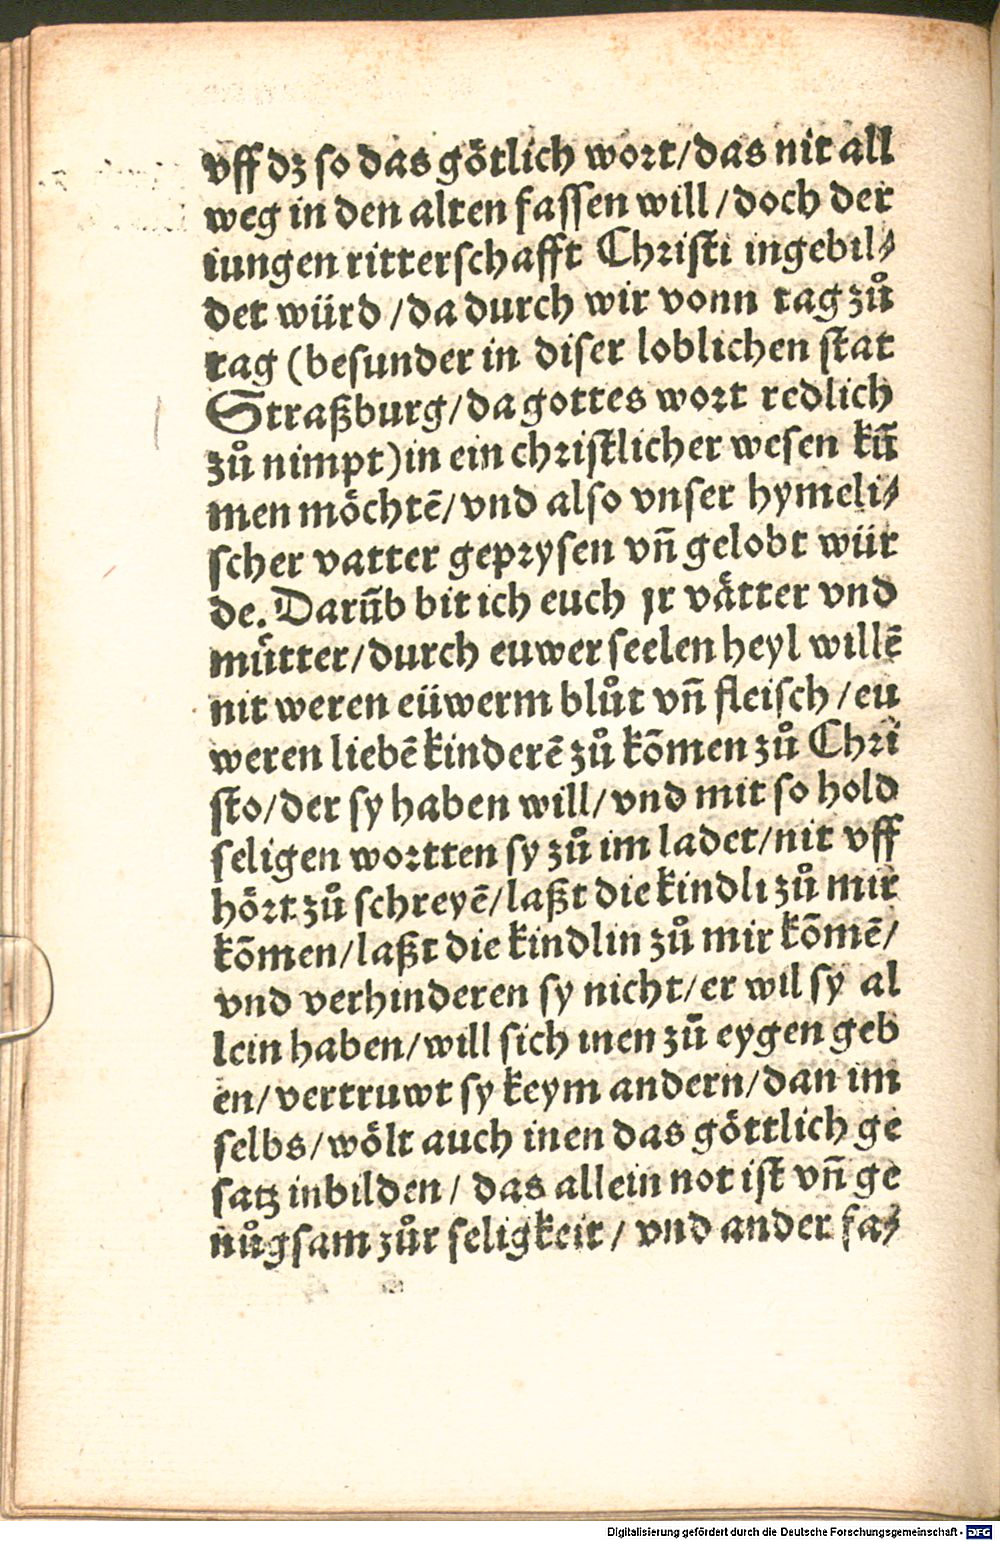 vff dz so das götlich wort/das nit all
weg in den alten fassen will/doch der
iungen ritterschafft Christi ingebil⸗
det würd/da durch wir vonn tag zůͦ
tag (besunder in diser loblichen stat
Straßburg/da gottes wort redlich
zů nimpt)in ein christlicher wesen kū
men möchtē/vnd also vnser hymeli⸗
scher vatter geprysen vn̄ gelobt wür
de. Darūb bit ich euch jr vätter vnd
mütter/durch euwer seelen heyl willē
nit weren eüwerm blůt vn̄ fleisch/eu
weren liebē kinderē zů kōmen zů Chri
sto/der sy haben will/vnd mit so hold
seligen wortten sy zů im ladet/nit vff
hört zů schreyē/laßt die kindli zů mir
kōmen/laßt die kindlin zů mir kōmē/
vnd verhinderen sy nicht/er wil sy al
lein haben/will sich inen zū eygen geb
en/vertruwt sy keym andern/dan im
selbs/wölt auch inen das göttlich ge
satz inbilden/ das allein not ist vn̄ ge
nůgsam zůr seligkeit/ vnd ander fa⸗
Digitalisierung gefördert durch die Deutsche Forschungsgemeinschaft - DFG